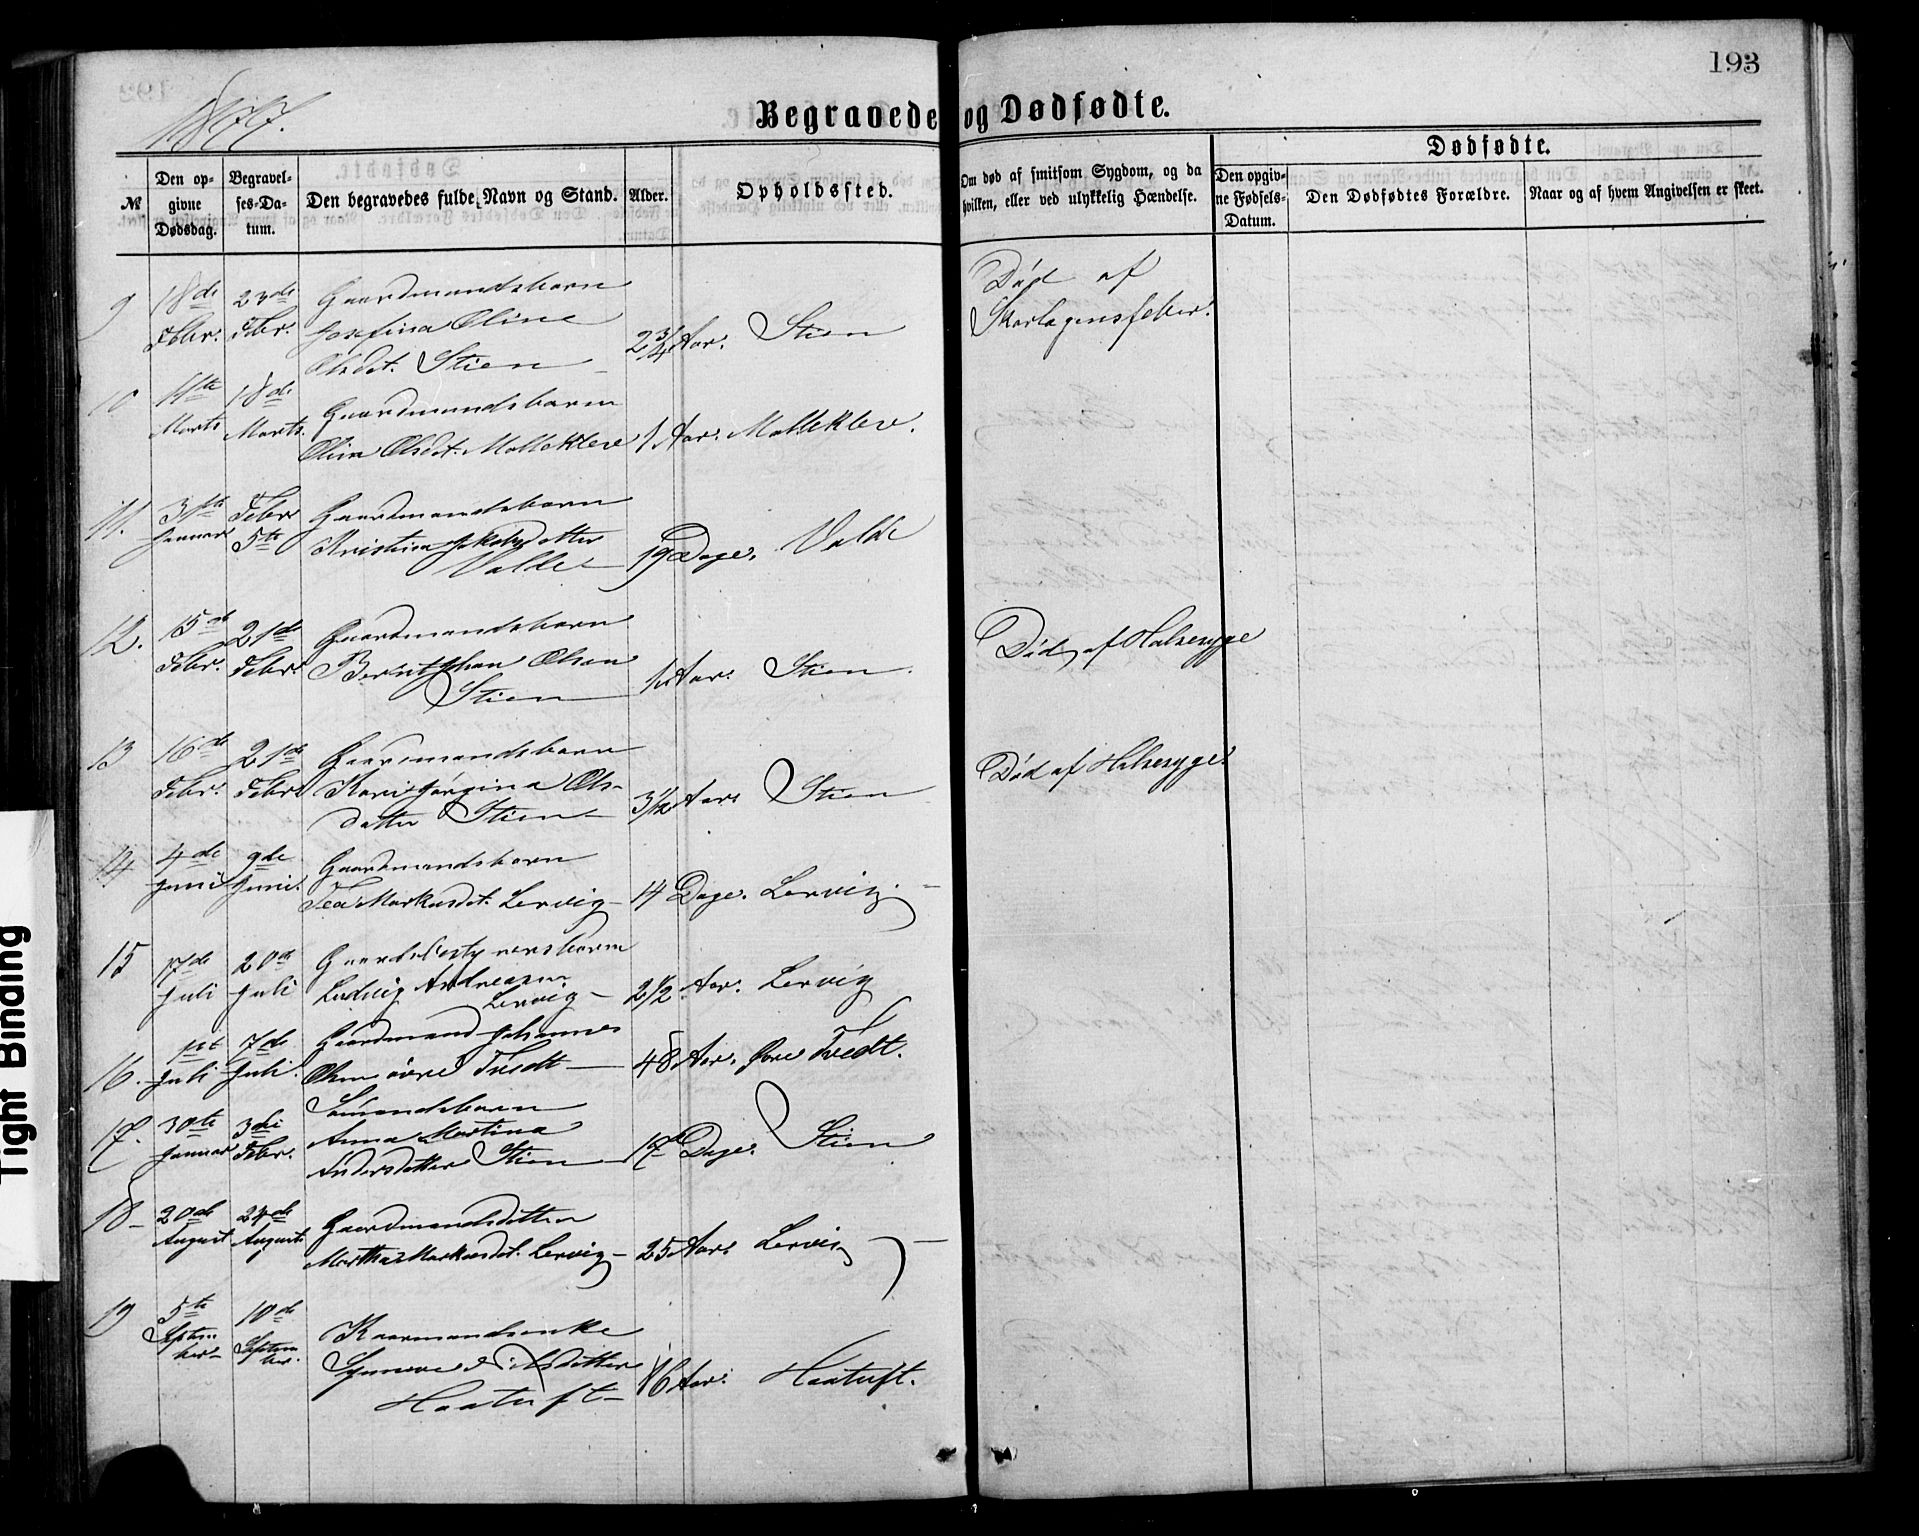 193
1877.
Begravede og Dødfødte.
Dødfødte.
№
Den opgivne Dødsdag.
Begravelses-Datum.
Den begravedes fulde Navn og Stand.
Alder.
Opholdssted.
Om død af smitsom Sygdom, og da hvilken, eller ved ulykkelig Hændelse.
Den opgivne Fødsels-Datum.
Den Dødfødtes Forældre.
Naar og af hvem Angivelsen er skeet.
9 18de Febr. 23de Febr. Gaardmandsbarn
Josefina Oline
Olsdt. Stien 2¾ Aar. Stien
Død af
Skarlagensfeber.
10 11te Marts 18de Marts. Gaardmandsbarn
Olina Olsdt. Mølleklev 1 Aar. Mølleklev.
11. 31te Januar Febr 5te Gaardmandsbarn
Kristina Jakobsdatter
Valde 19 Dage. Valde
12. 15de Febr. 21de Febr. Gaardmandsbarn
Bernt Johan Olsen
Stien 1 Aar. Stien. Død af Halsesyge
13 16de Febr. 21de Febr. Gaardmandsbarn
Kari Jørgina Ols-
datter Stien 3½ Aar Stien Død af Halsesyge.
14 4de Juni 9de Juni. Gaardmandsbarn
Tea Markusdt. Lervig 14 Dage. Lervig.
15 17de Juli 20de Juli Gaardsbestyrersbarn
Ludvig Andreasen
Lervig 2½ Aar. Lervig
16. 1st Juli 7de Juli. Gaardmand Johannes
Olsen øvre Tvedt 48 Aar. Øvre Tvedt.
17. 30te Januar 3die Febr. Sømandsbarn
Anna Martina
Andersdatter Stien 17 Dage. Stien
18 20de August 24de August Gaardmandsdatter
Martha Markusdt. Lervig 25 Aar Lervig
19 5te September 10de September. Kaarmandsenke
Synneve Nilsdatter
Haatuft 76 Aar. Haatuft.
Tight Binding